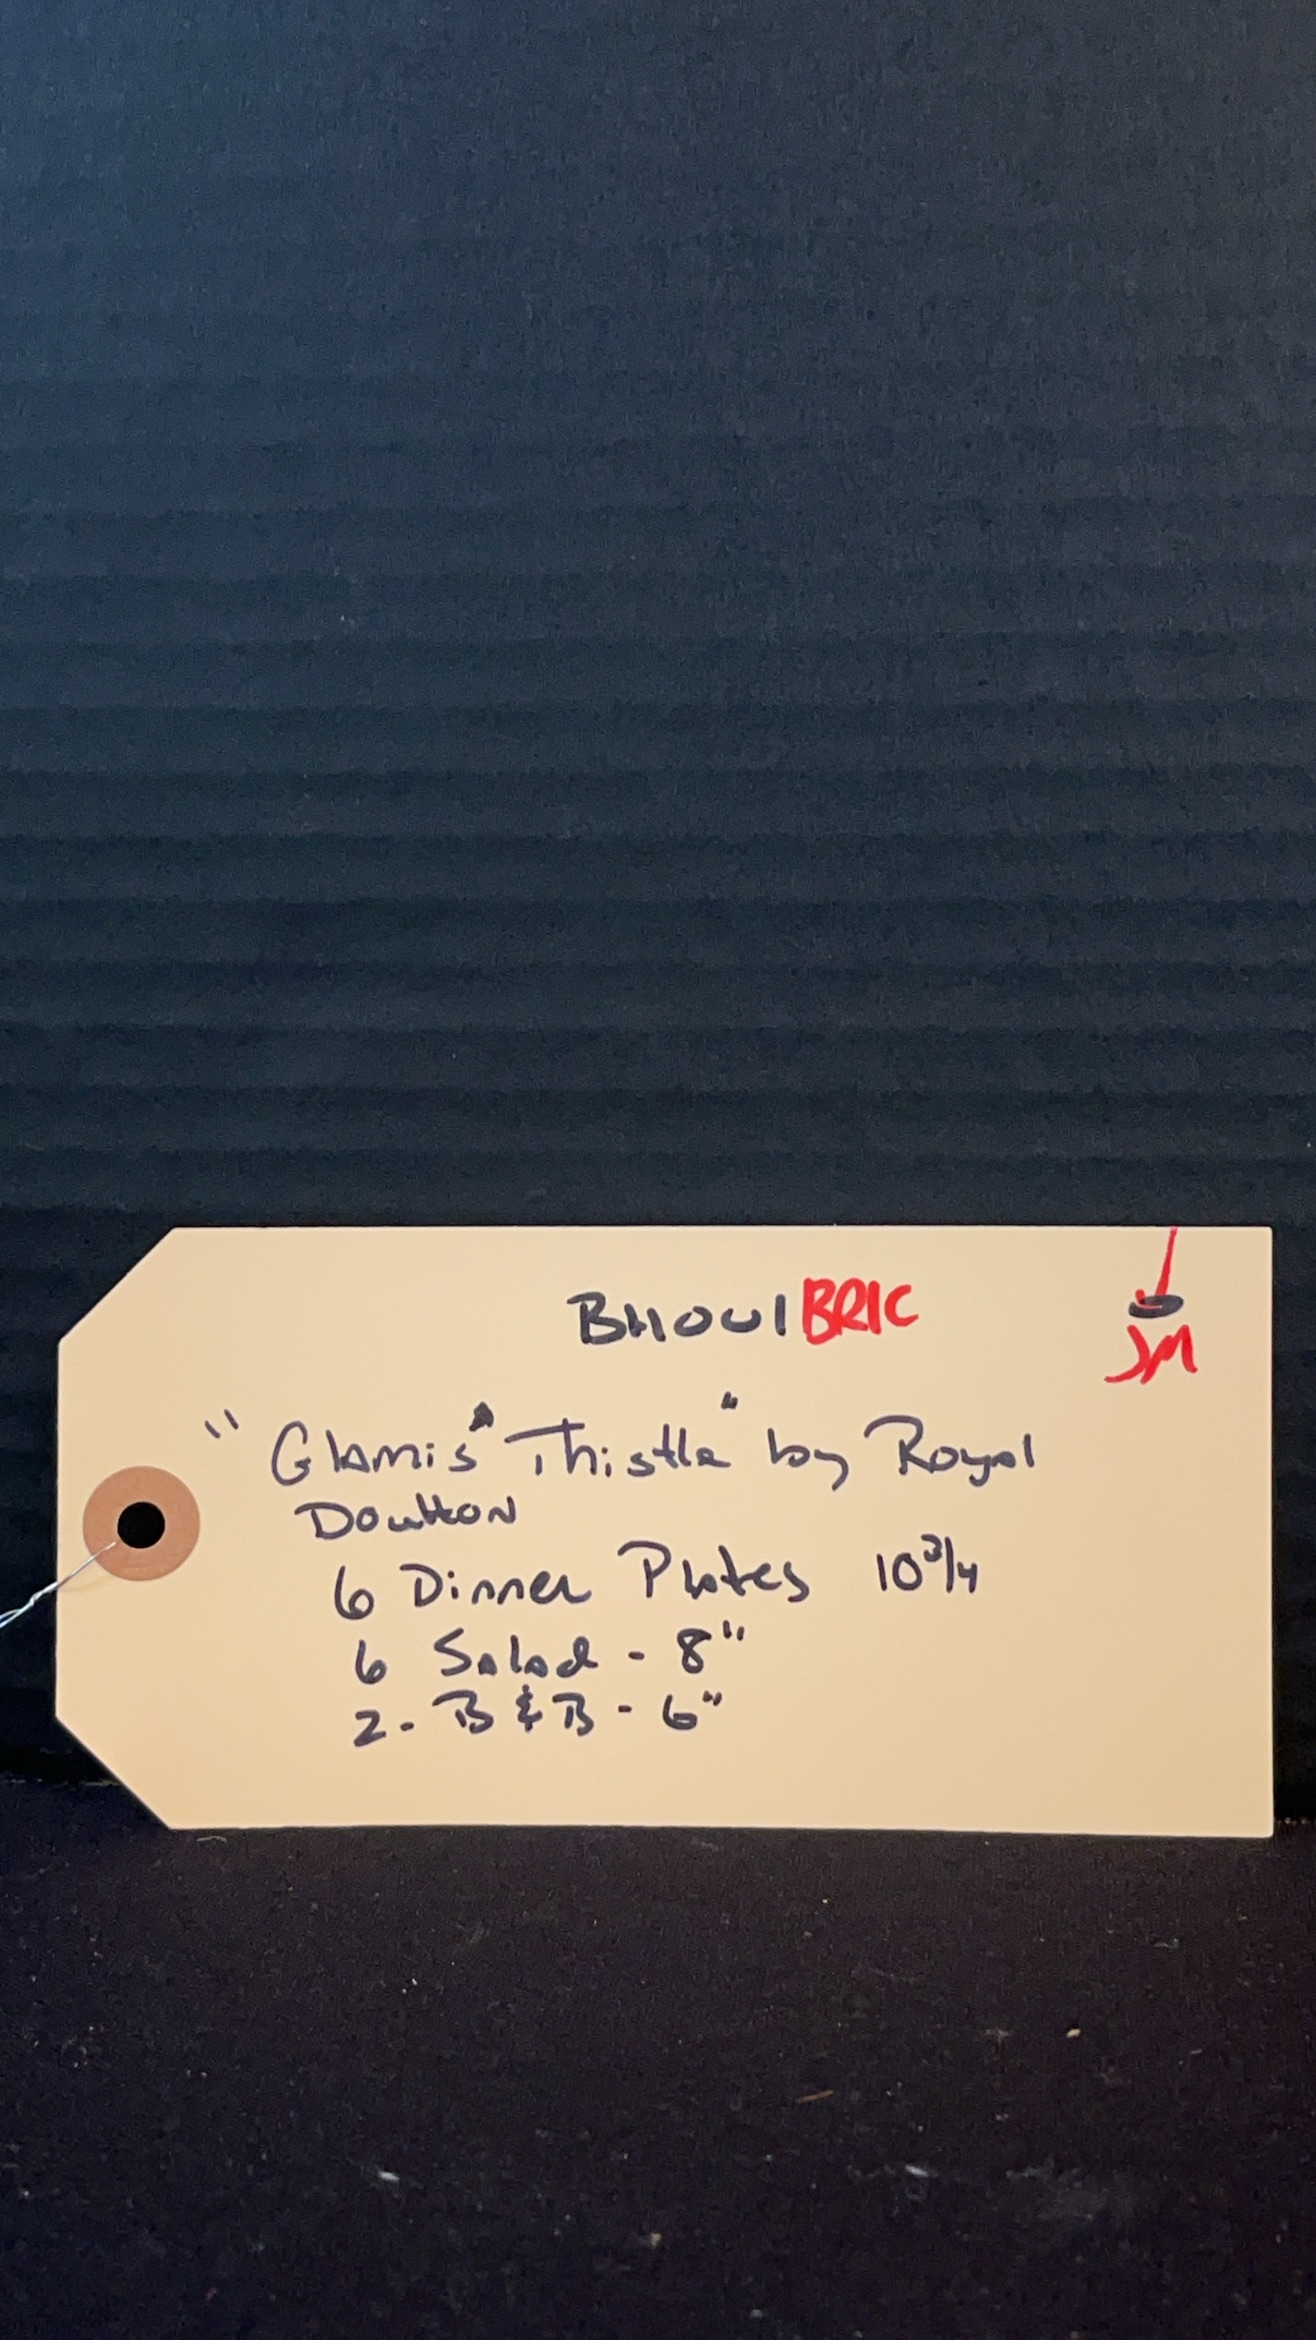 BHOU1BRIC
JM
"Glamis Thistle" by Royal
Doulton
6 Dinner Plates 10 3/4
6 Salad - 8"
2 - B & B - 6"